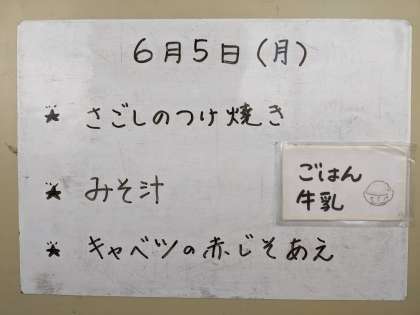 6月5日(月)
★ さごしのつけ焼き
★ みそ汁
ごはん
牛乳
★ キャベツの赤じそあえ